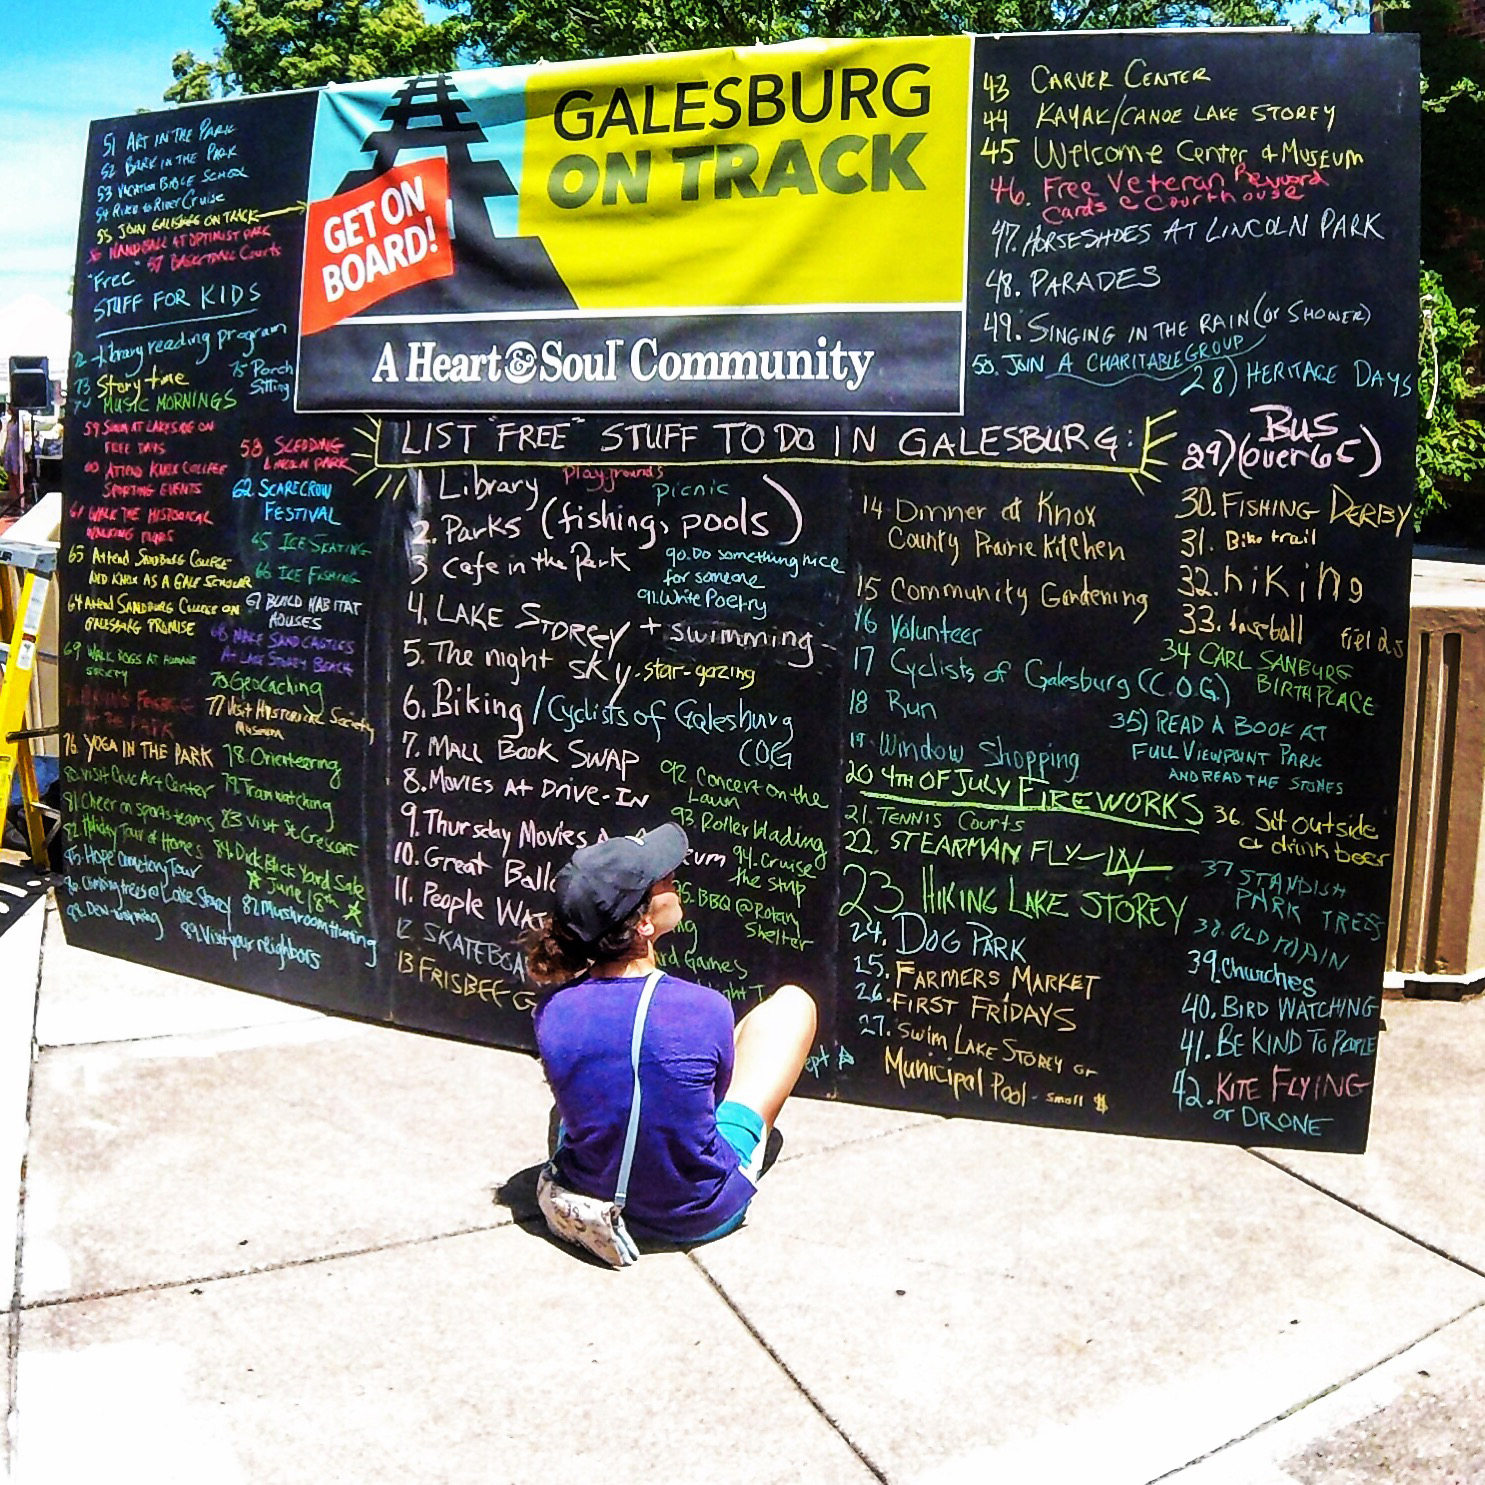 GALESBURG
ON TRACK
GET ON
BOARD!
A Heart & Soul™ Community
LIST "FREE" STUFF TO DO IN GALESBURG:
51 ART IN THE PARK
52 BARK IN THE PARK
53 VACATION BIBLE SCHOOL
54 River to River Cruise
55 JOIN GALESBURG ON TRACK
56 HANDBALL AT OPTIMIST PARK
57 BASKETBALL Courts
"Free"
STUFF FOR KIDS
Library reading program
73 Storytime
75 Porch
Sitting
MUSIC MORNINGS
59 SWIM AT LAKESIDE ON
FREE DAYS
60 ATTEND KNOX COLLEGE
SPORTING EVENTS
61 WALK THE HISTORICAL
WALKING TOURS
63 Attend SANDBURG COLLEGE
AND KNOX AS A GALE SCHOLAR
64 Attend SANDBURG COLLEGE ON
GALESBURG PROMISE
69 WALK DOGS AT HUMANE
SOCIETY
IN THE PARK
76 YOGA IN THE PARK
80. Visit Civic Art Center
81 Cheer on sports teams
82 Holiday Tour of Homes
85. Hope Cemetery Tour
86. Climbing trees @ Lake Storey
58 SLEDDING
LINCOLN PARK
62 SCARECROW
FESTIVAL
65 ICE SKATING
66 ICE FISHING
67 BUILD HABITAT
HOUSES
68 MAKE SAND CASTLES
AT LAKE STOREY BEACH
70 Geocaching
77 Visit Historical Society
Museum
78. Orienteering
79. Train watching
83 Visit St. Crescent
84. Dick Block Yard Sale
☆ June 18th ☆
87. Mushroom Hunting
89. Visit your neighbors
1 Library
Playgrounds
Picnic
2. Parks (fishing, pools)
3 Cafe in the Park
4. LAKE STOREY + swimming
5. The night sky - star-gazing
6. Biking / Cyclists of Galesburg
COG
7. MALL Book SWAP
8. MOVIES AT DRIVE-IN
9. Thursday Movies
10. Great
11. People
12 SKATEBOA
13 FRISBEE G
90. Do something nice
for someone
91. Write Poetry
92 Concert on the
Lawn
93. Rollerblading
94. Cruise
the strip
95. BBQ @ Rotary
Shelter
Games
14 Dinner at Knox
County Prairie Kitchen
15 Community Gardening
16 Volunteer
17 Cyclists of Galesburg (C.O.G.)
18 Run
19. Window Shopping
20 4TH OF JULY FIREWORKS
21. TENNIS Courts
22. STEARMAN FLY-IN
23 HIKING LAKE STOREY
24. DOG PARK
25. FARMERS MARKET
26. FIRST FRIDAYS
27. Swim LAKE STOREY or
Municipal Pool - small $
43 CARVER CENTER
44 KAYAK/CANOE LAKE STOREY
45 Welcome Center & Museum
46. Free Veteran Reward
Cards @ Courthouse
47. HORSESHOES AT LINCOLN PARK
48. PARADES
49. SINGING IN THE RAIN (or SHOWER)
50. JOIN A CHARITABLE GROUP
28) HERITAGE DAYS
29) BUS
(over 65)
30. FISHING DERBY
31. Bike trail
32. hiking
33. baseball fields
34 CARL SANBURG
BIRTHPLACE
35) READ A BOOK AT
FULL VIEWPOINT PARK
AND READ THE STONES
36. Sit outside
a drink beer
37 STANDISH
PARK TREES
38. OLD MAIN
39. Churches
40. BIRD WATCHING
41. BE KIND TO PEOPLE
42. KITE FLYING
or DRONE